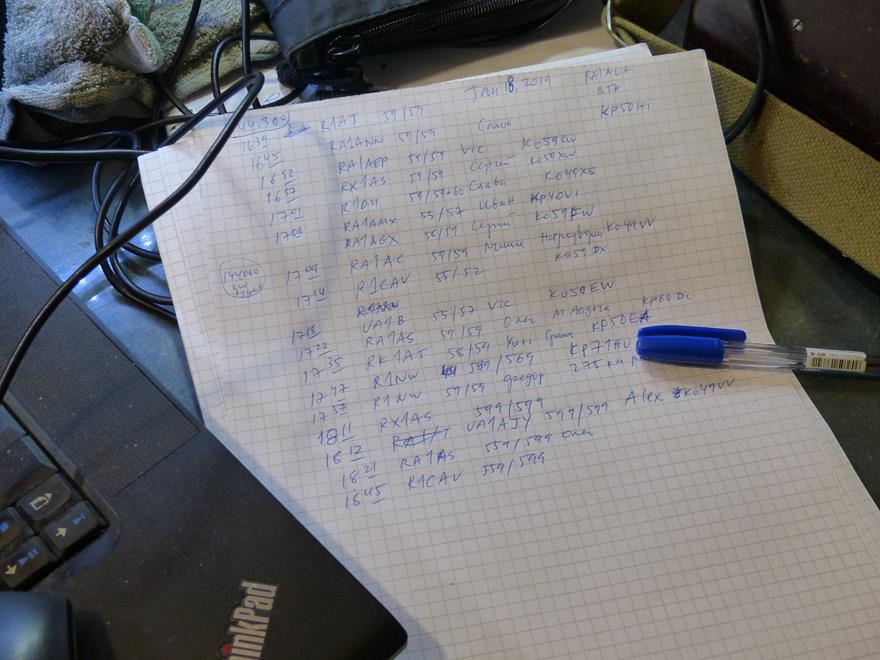 Jan 18, 2019 RA1ALA
QTH
144.300 R1AJ 59/59 KP50HI
16 39 RA1ANN 59/59 Саша
16 45 RA1AEP 59/59 Vic KO59CW
16 52 RX1AS 59/59 Сергей KO59XW
16 57 R1DM 59/59+60 Слава KO49XQ
17 01 RA1AMX 55/57 Иван KP40VI
17 06 RA1AGX 56/59 Сергей KO59FW
17 09 RA1AC 59/59 Миша KO49VV
17 14 R1CAV 55/52 KO59DX
144060
17 18 UA1B 55/57 Vic KO59EW
17 22 RA1AS 59/59 Олег KP60DC
17 35 RK1AT 58/59 Yuri KP50EA
17 47 R1NW 589/569 KP71HU
17 57 R1NW 59/59 Федор 275 км
18 11 RX1AS 599/599
18 12 UA1AJY 599/599 Alex KO49VV
18 21 RA1AS 559/599 Олег
18 45 R1CAV 559/599
ThinkPad